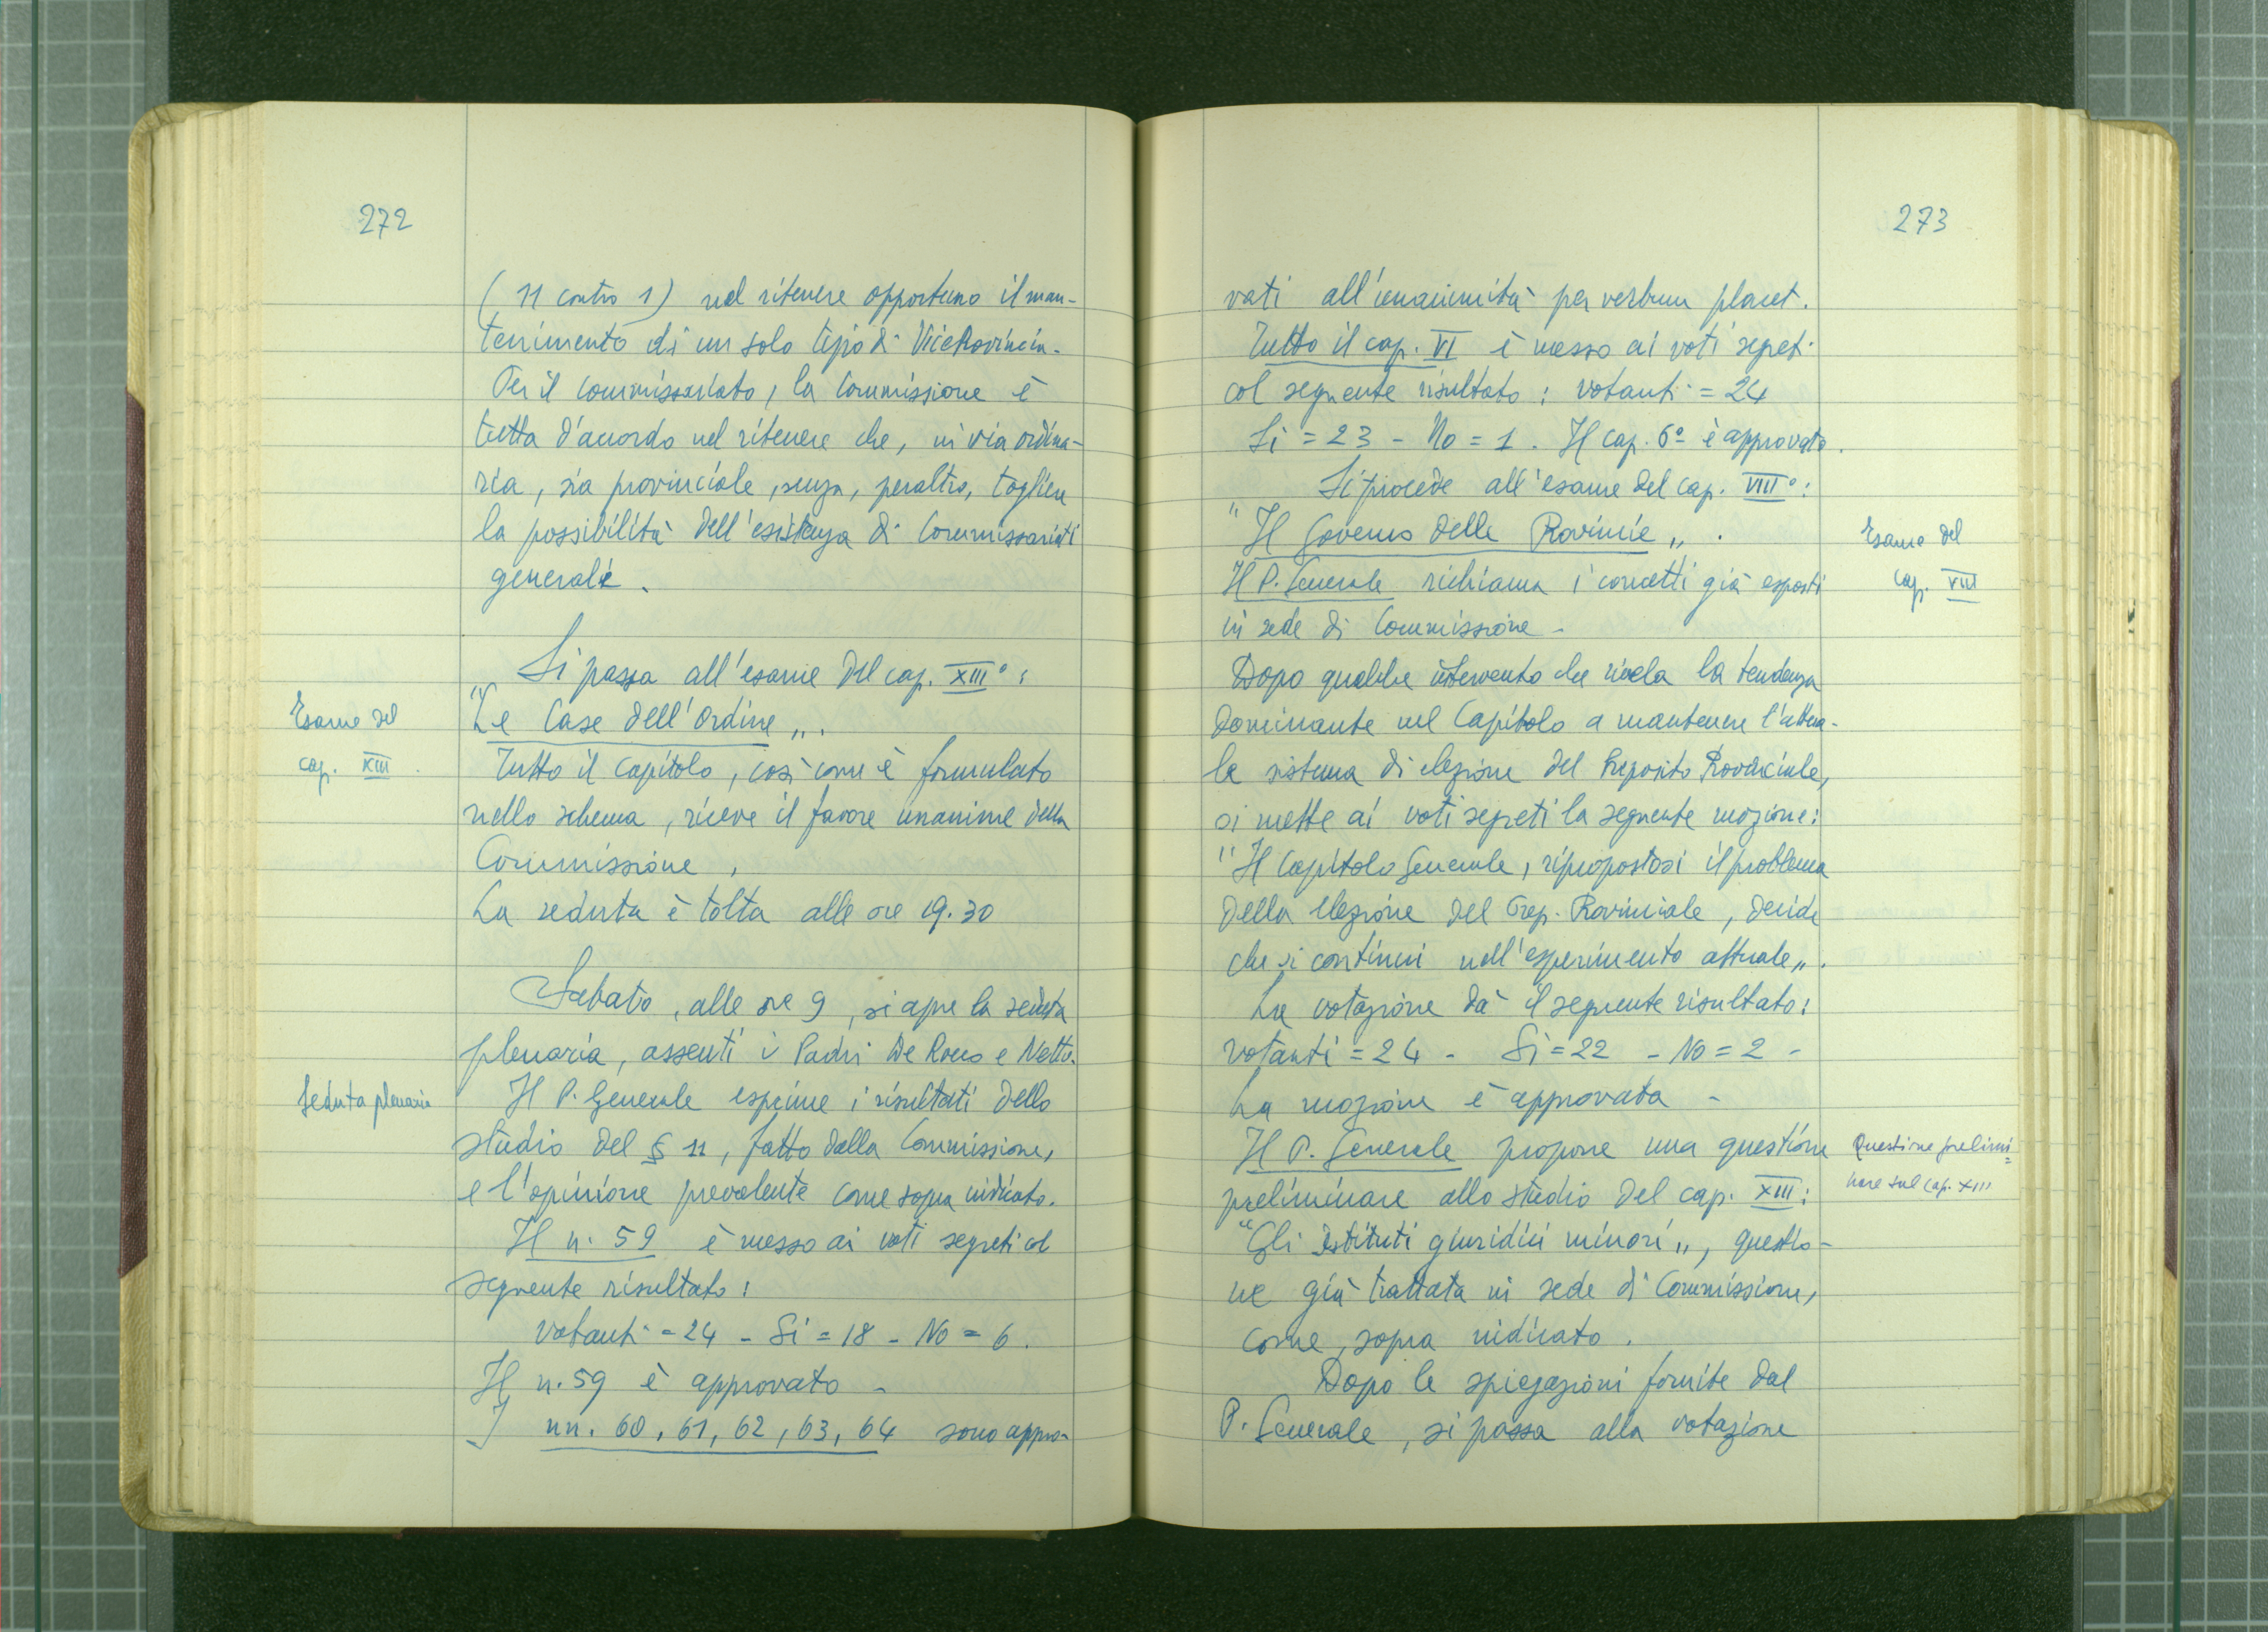 272
( 11 contro 1) nel ritenere opportuno il man-
tenimento di un solo tipo di ViceProvincia.
Per il commissariato, la Commissione è
tutta d'accordo nel ritenere che, in via ordina-
ria, sia provinciale, senza, peraltro, togliere
la possibilità dell'esistenza di Commissariati
generali.
Si passa all'esame del cap. XIII°:
"Le Case dell'Ordine".
Esame del
cap. XIII.
Tutto il capitolo, così come è formulato
nello schema, riceve il favore unanime della
Commissione.
La seduta è tolta alle ore 19.30
Sabato, alle ore 9, si apre la seduta
plenaria, assenti i Padri De Rocco e Netto.
Seduta plenaria
Il P. Generale esprime i risultati dello
studio del § 11, fatto dalla Commissione,
e l'opinione prevalente come sopra indicato.
Il n. 59 è messo ai voti segreti col
seguente risultato:
Votanti = 24 - Si = 18 - No = 6.
Il n. 59 è approvato -
I nn. 60, 61, 62, 63, 64 sono appro-
273
vati all'unanimità per verbum placet.
Tutto il cap. VI è messo ai voti segreti
col seguente risultato: votanti = 24
Si = 23 - No = 1. Il cap. 6º è approvato.
Si procede all'esame del cap. VIII°:
"Il Governo delle Provincie".
Esame del
cap. VIII
Il P. Generale richiama i concetti già esposti
in sede di Commissione -
Dopo qualche intervento che rivela la tendenza
dominante nel Capitolo a mantenere l'attua-
le sistema di elezione del Preposito Provinciale,
si mette ai voti segreti la seguente mozione:
"Il Capitolo Generale, ripropostosi il problema
della elezione del Prep. Provinciale, decide
che si continui nell'esperimento attuale".
La votazione dà il seguente risultato:
votanti = 24 - Si = 22 - No = 2 -
La mozione è approvata -
Il P. Generale propone una questione
Questione prelimi=
nare sul cap. XIII
preliminare allo studio del cap. XIII:
"Gli Istituti giuridici minori", questio-
ne già trattata in sede di Commissione,
come, sopra indicato.
Dopo le spiegazioni fornite dal
P. Generale, si passa alla votazione